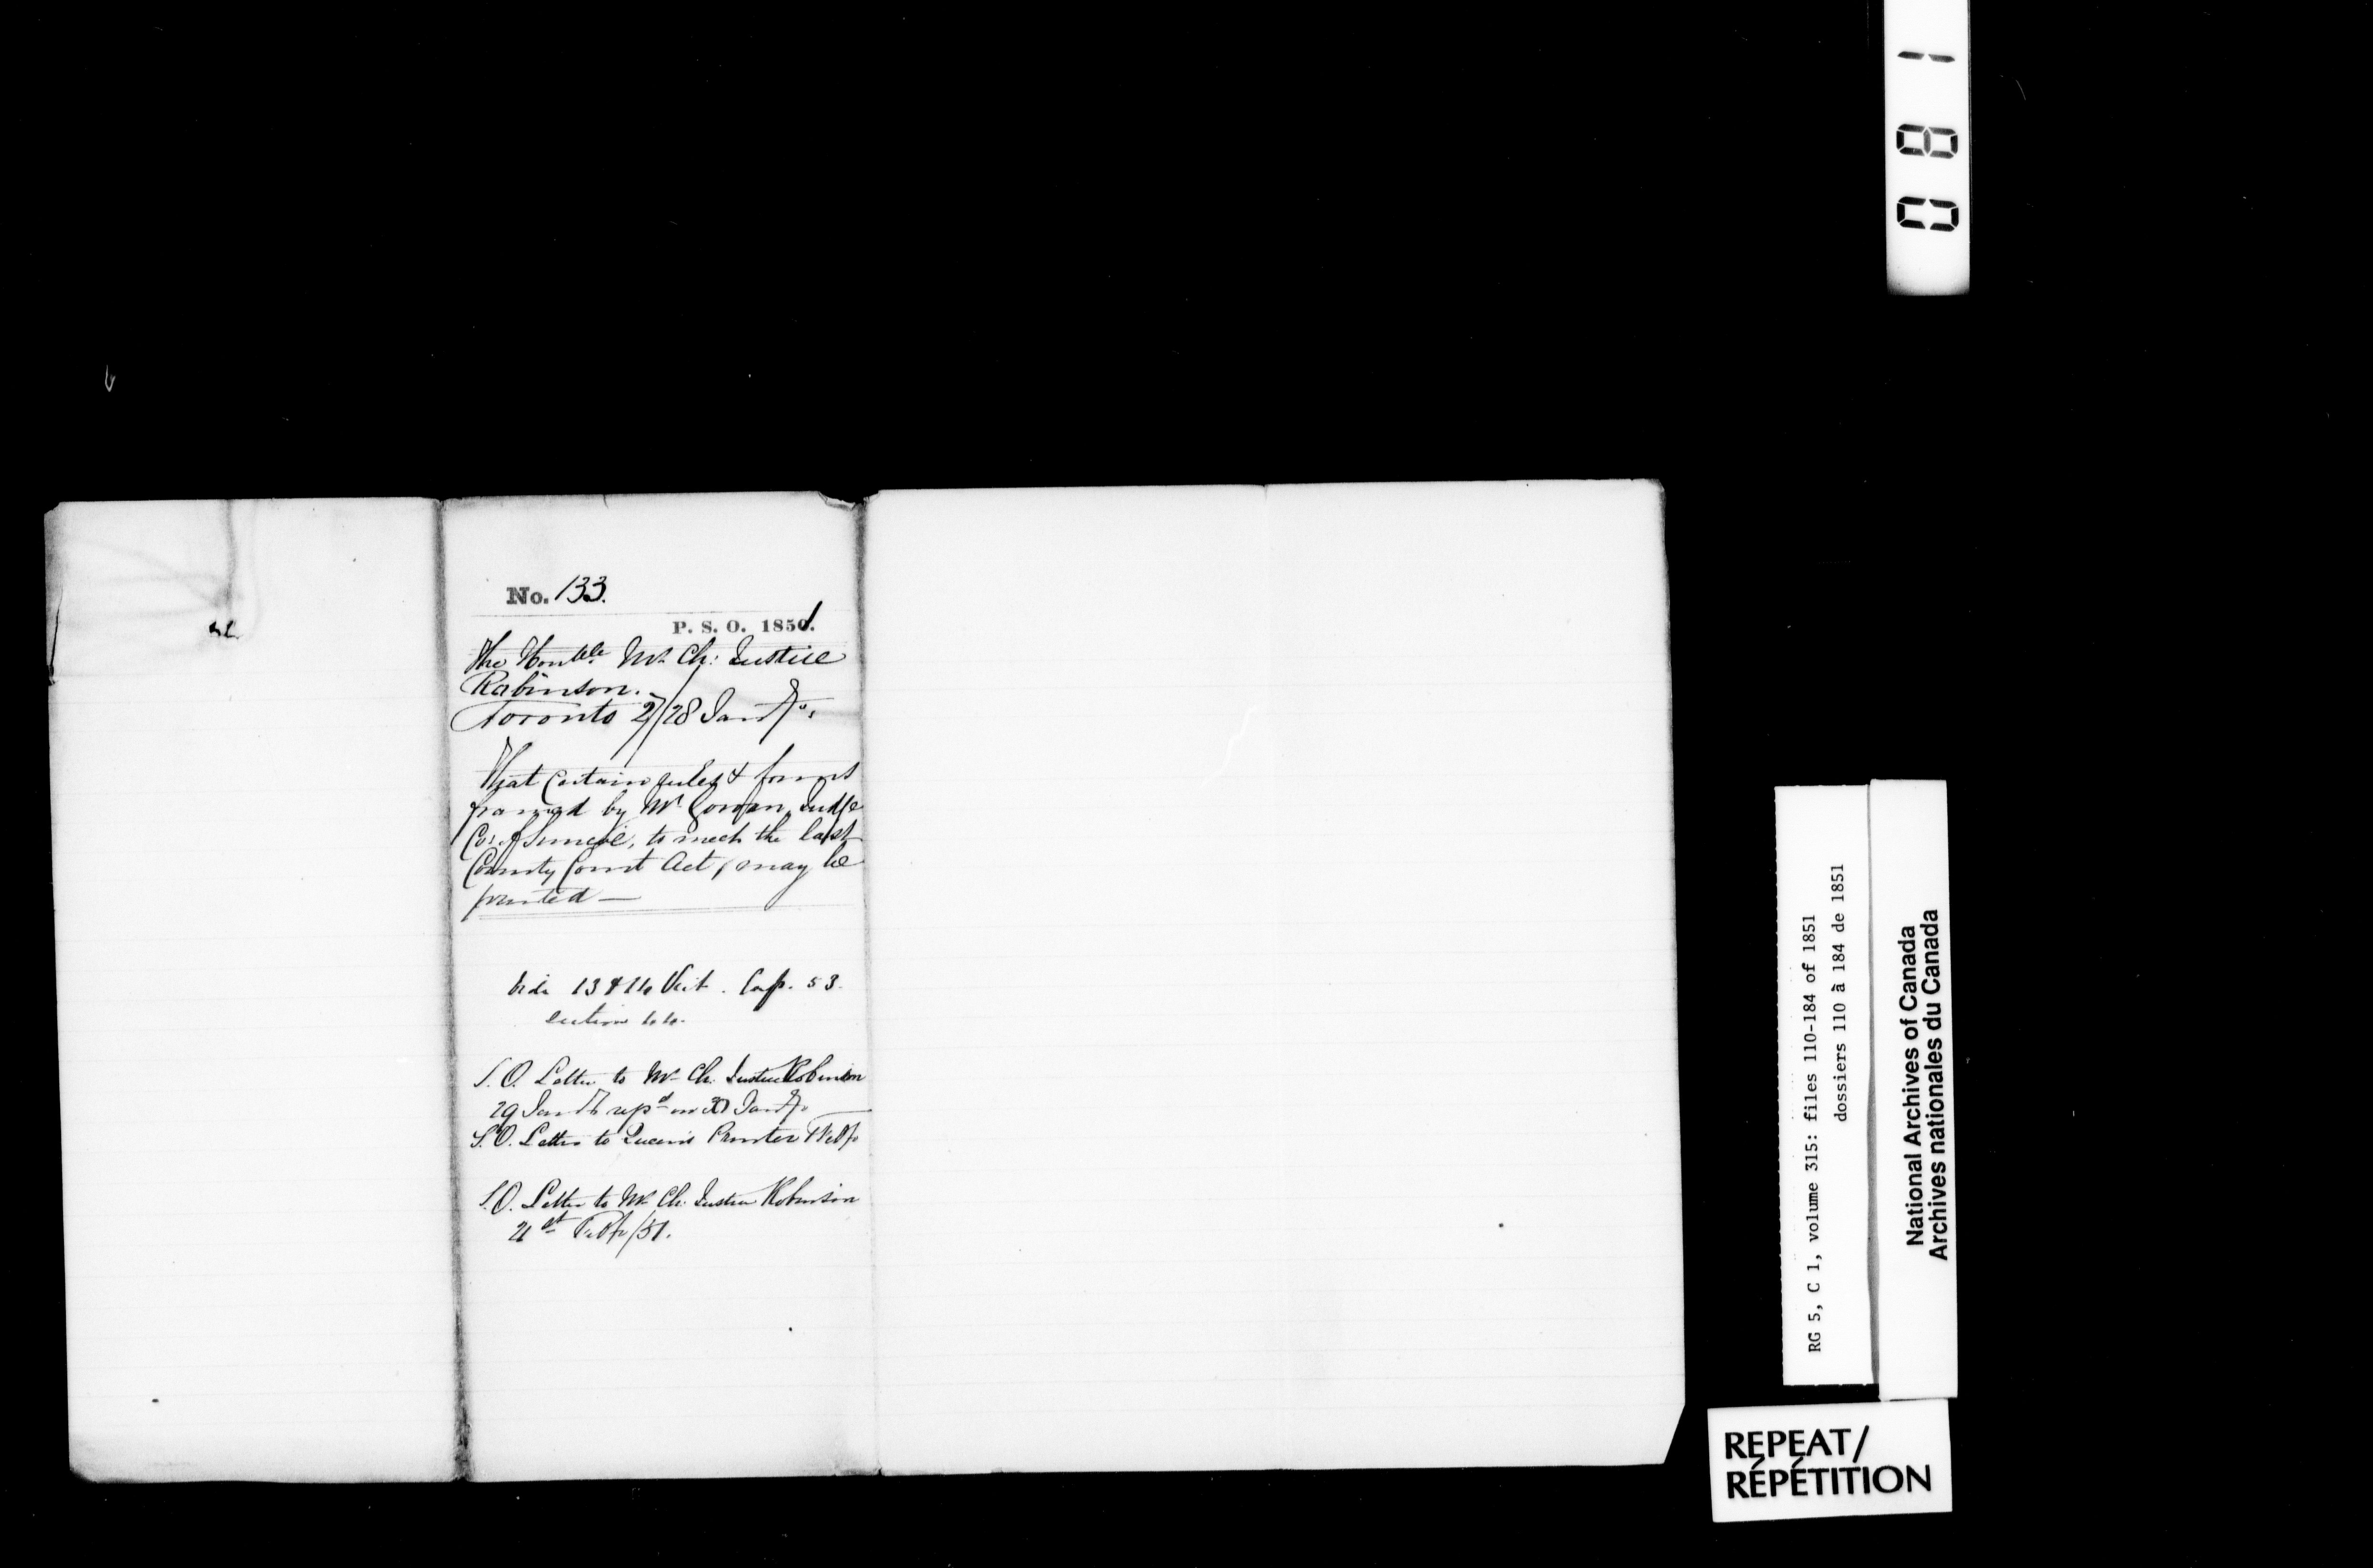 No. 133.
P. S. O. 1851.
The Honble. Mr. Ch: Justice
Robinson.
Toronto 27/28 Jany.
That certain rules & forms
framed by Mr Gowan, Judge
Co: of Simcoe, to meet the last
County Court Act, may be
printed —
Vide 13 & 14 Vict. Cap. 53.
Section
S. O. Letter to Mr Ch. Justice Robinson
29 Jany repd on 30 Jany
S. O. Letter to Queen's Printer Feby
S. O. Letter to Mr Ch. Justice Robinson
21st Feby/51.
081
RG 5, C 1, volume 315: files 110-184 of 1851
dossiers 110 à 184 de 1851
National Archives of Canada
Archives nationales du Canada
REPEAT/
RÉPÉTITION